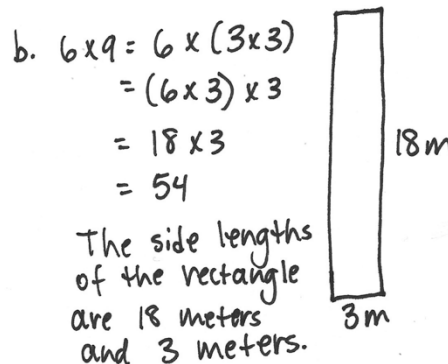 b. 6x9 = 6 x (3x3)
= (6 x 3) x 3
= 18 x 3
= 54
18 m
The side lengths
of the rectangle
are 18 meters
and 3 meters.
3 m